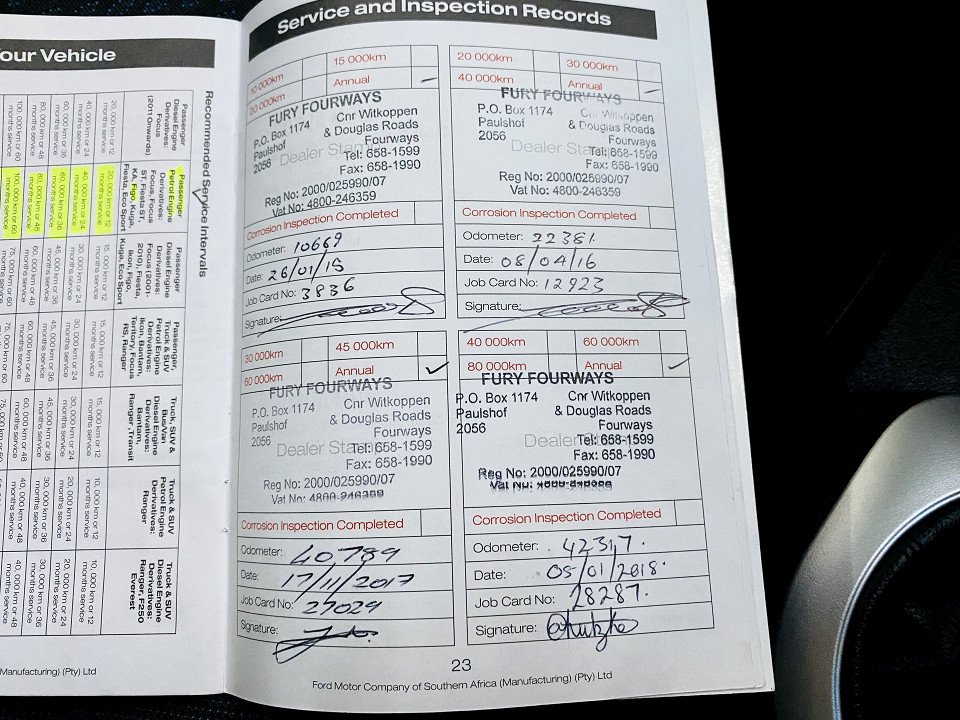 our Vehicle
Recommended Service Intervals
Passenger Diesel Engine Derivatives: Focus (2011 Onwards)
20, 000 km or 12 months service
40, 000 km or 24 months service
60, 000 km or 36 months service
80, 000 km or 48 months service
100, 000 km or 60 months service
Passenger Petrol Engine Derivatives: Focus, Focus ST, Fiesta ST, KA, Figo, Kuga, Fiesta, Eco Sport
20, 000 km or 12 months service
40, 000 km or 24 months service
60, 000 km or 36 months service
80, 000 km or 48 months service
100, 000 km or 60 months service
Passenger Diesel Engine Derivatives: Focus (2001-2010), Fiesta, Ikon, Figo, Kuga, Eco Sport
15, 000 km or 12 months service
30, 000 km or 24 months service
45, 000 km or 36 months service
60, 000 km or 48 months service
75, 000 km or 60 months service
Passenger, Truck & SUV Petrol Engine Derivatives: Ikon, Bantam, Territory, Focus RS, Ranger
15, 000 km or 12 months service
30, 000 km or 24 months service
45, 000 km or 36 months service
60, 000 km or 48 months service
75, 000 km or 60 months service
Truck, SUV & Bus/Van Diesel Engine Derivatives: Bantam, Ranger, Transit
15, 000 km or 12 months service
30, 000 km or 24 months service
45, 000 km or 36 months service
60, 000 km or 48 months service
75, 000 km or 60
Truck & SUV Petrol Engine Derivatives: Ranger
10, 000 km or 12 months service
20, 000 km or 24 months service
30, 000 km or 36 months service
40, 000 km or 48 months service
Truck & SUV Diesel Engine Derivatives: Ranger, F250 Everest
10, 000 km or 12 months service
20, 000 km or 24 months service
30, 000 km or 36 months service
40, 000 km or 48 months service
(Manufacturing) (Pty) Ltd
Service and Inspection Records
10 000km 15 000km
20 000km Annual
FURY FOURWAYS
P.O. Box 1174 Cnr Witkoppen
Paulshof & Douglas Roads
2056 Fourways
Dealer Stamp
Tel: 658-1599
Fax: 658-1990
Reg No: 2000/025990/07
Vat No: 4800-246359
Corrosion Inspection Completed
Odometer: 10669
Date: 26/01/15
Job Card No: 3836
Signature:
20 000km 30 000km
40 000km Annual
FURY FOURWAYS
P.O. Box 1174 Cnr Witkoppen
Paulshof & Douglas Roads
2056 Fourways
Dealer Stamp
Tel: 658-1599
Fax: 658-1990
Reg No: 2000/025990/07
Vat No: 4800-246359
Corrosion Inspection Completed
Odometer: 22381
Date: 08/04/16
Job Card No: 12923
Signature:
30 000km 45 000km
60 000km Annual
FURY FOURWAYS
P.O. Box 1174 Cnr Witkoppen
Paulshof & Douglas Roads
2056 Fourways
Dealer Stamp
Tel: 658-1599
Fax: 658-1990
Reg No: 2000/025990/07
Vat No: 4800-246359
Corrosion Inspection Completed
Odometer: 40789
Date: 17/11/2017
Job Card No: 27029
Signature:
40 000km 60 000km
80 000km Annual
FURY FOURWAYS
P.O. Box 1174 Cnr Witkoppen
Paulshof & Douglas Roads
2056 Fourways
Dealer
Tel: 658-1599
Fax: 658-1990
Reg No: 2000/025990/07
Vat No:
Corrosion Inspection Completed
Odometer: 42317.
Date: 05/01/2018.
Job Card No: 28287.
Signature:
23
Ford Motor Company of Southern Africa (Manufacturing) (Pty) Ltd